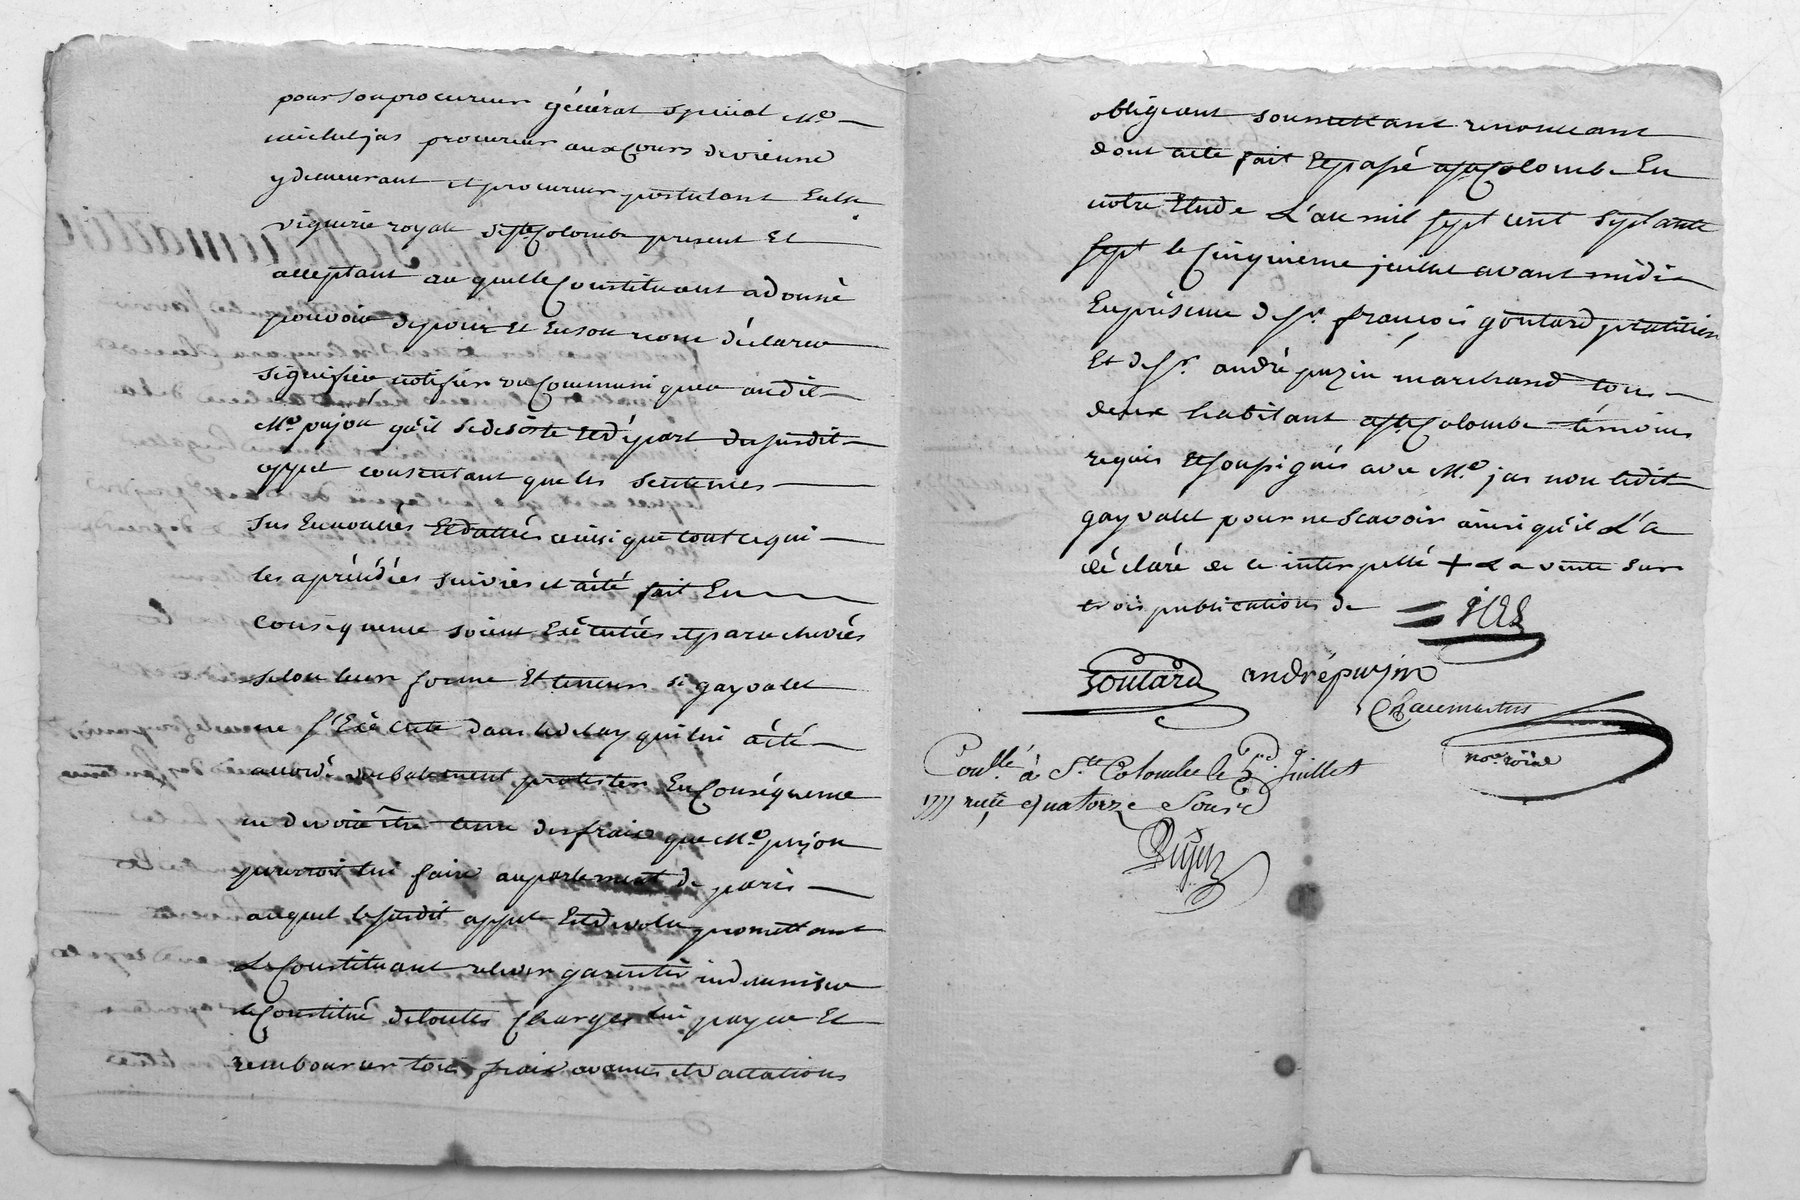 pour son procureur général spécial Me
michel jas procureur aux Cours de vienne
y demeurant et procureur postulant En la
viguerie royale de ste Colombe present Et
acceptant auquel le Constituant a donné
pouvoir de pour Et En son nom déclarer
signifier notifier ou Communiquer audit
Me pujon qu'il se desiste Et départ du susdit
appel consentant que les sentences
sus Enoncées Et dattées ainsi que tout ce qui
les a précédées suivies et a été fait En
conséquence soient Exécutées et parachevées
selon leur forme Et teneur si gayvalet
ne s'Exécute dans le delay qui lui a été
accordé verbalement protester En Conséquence
ne devoir être tenu des frais que Me pujon
pourroit lui faire au parlement de paris
auquel le susdit appel Est devolu promettant
Le Constituant relever garentir indemniser
le Constitué de toutes Charges lui payer Et
rembourser tous frais avances et vaccations
obligeant soumettant renonceant
dont acte fait Et passé a ste Colombe En
notre Etude L'an mil sept cent septante
sept le Cinquieme juillet avant midi
En présence de sr. françois goutard praticien
Et de sr. andré puzin marchand tous
deux habitant a ste Colombe témoins
requis Et soussignés avec Me. jas non ledit
gayvalet pour ne scavoir ainsi qu'il L'a
déclaré de ce interpellé + La vente sur
trois publications de
JAS
Goutard andrépuzin
Chaumartin
no. roïal
Conlé. à Ste. Colombe le 5 Juillet
1777 reçu quatorze sous